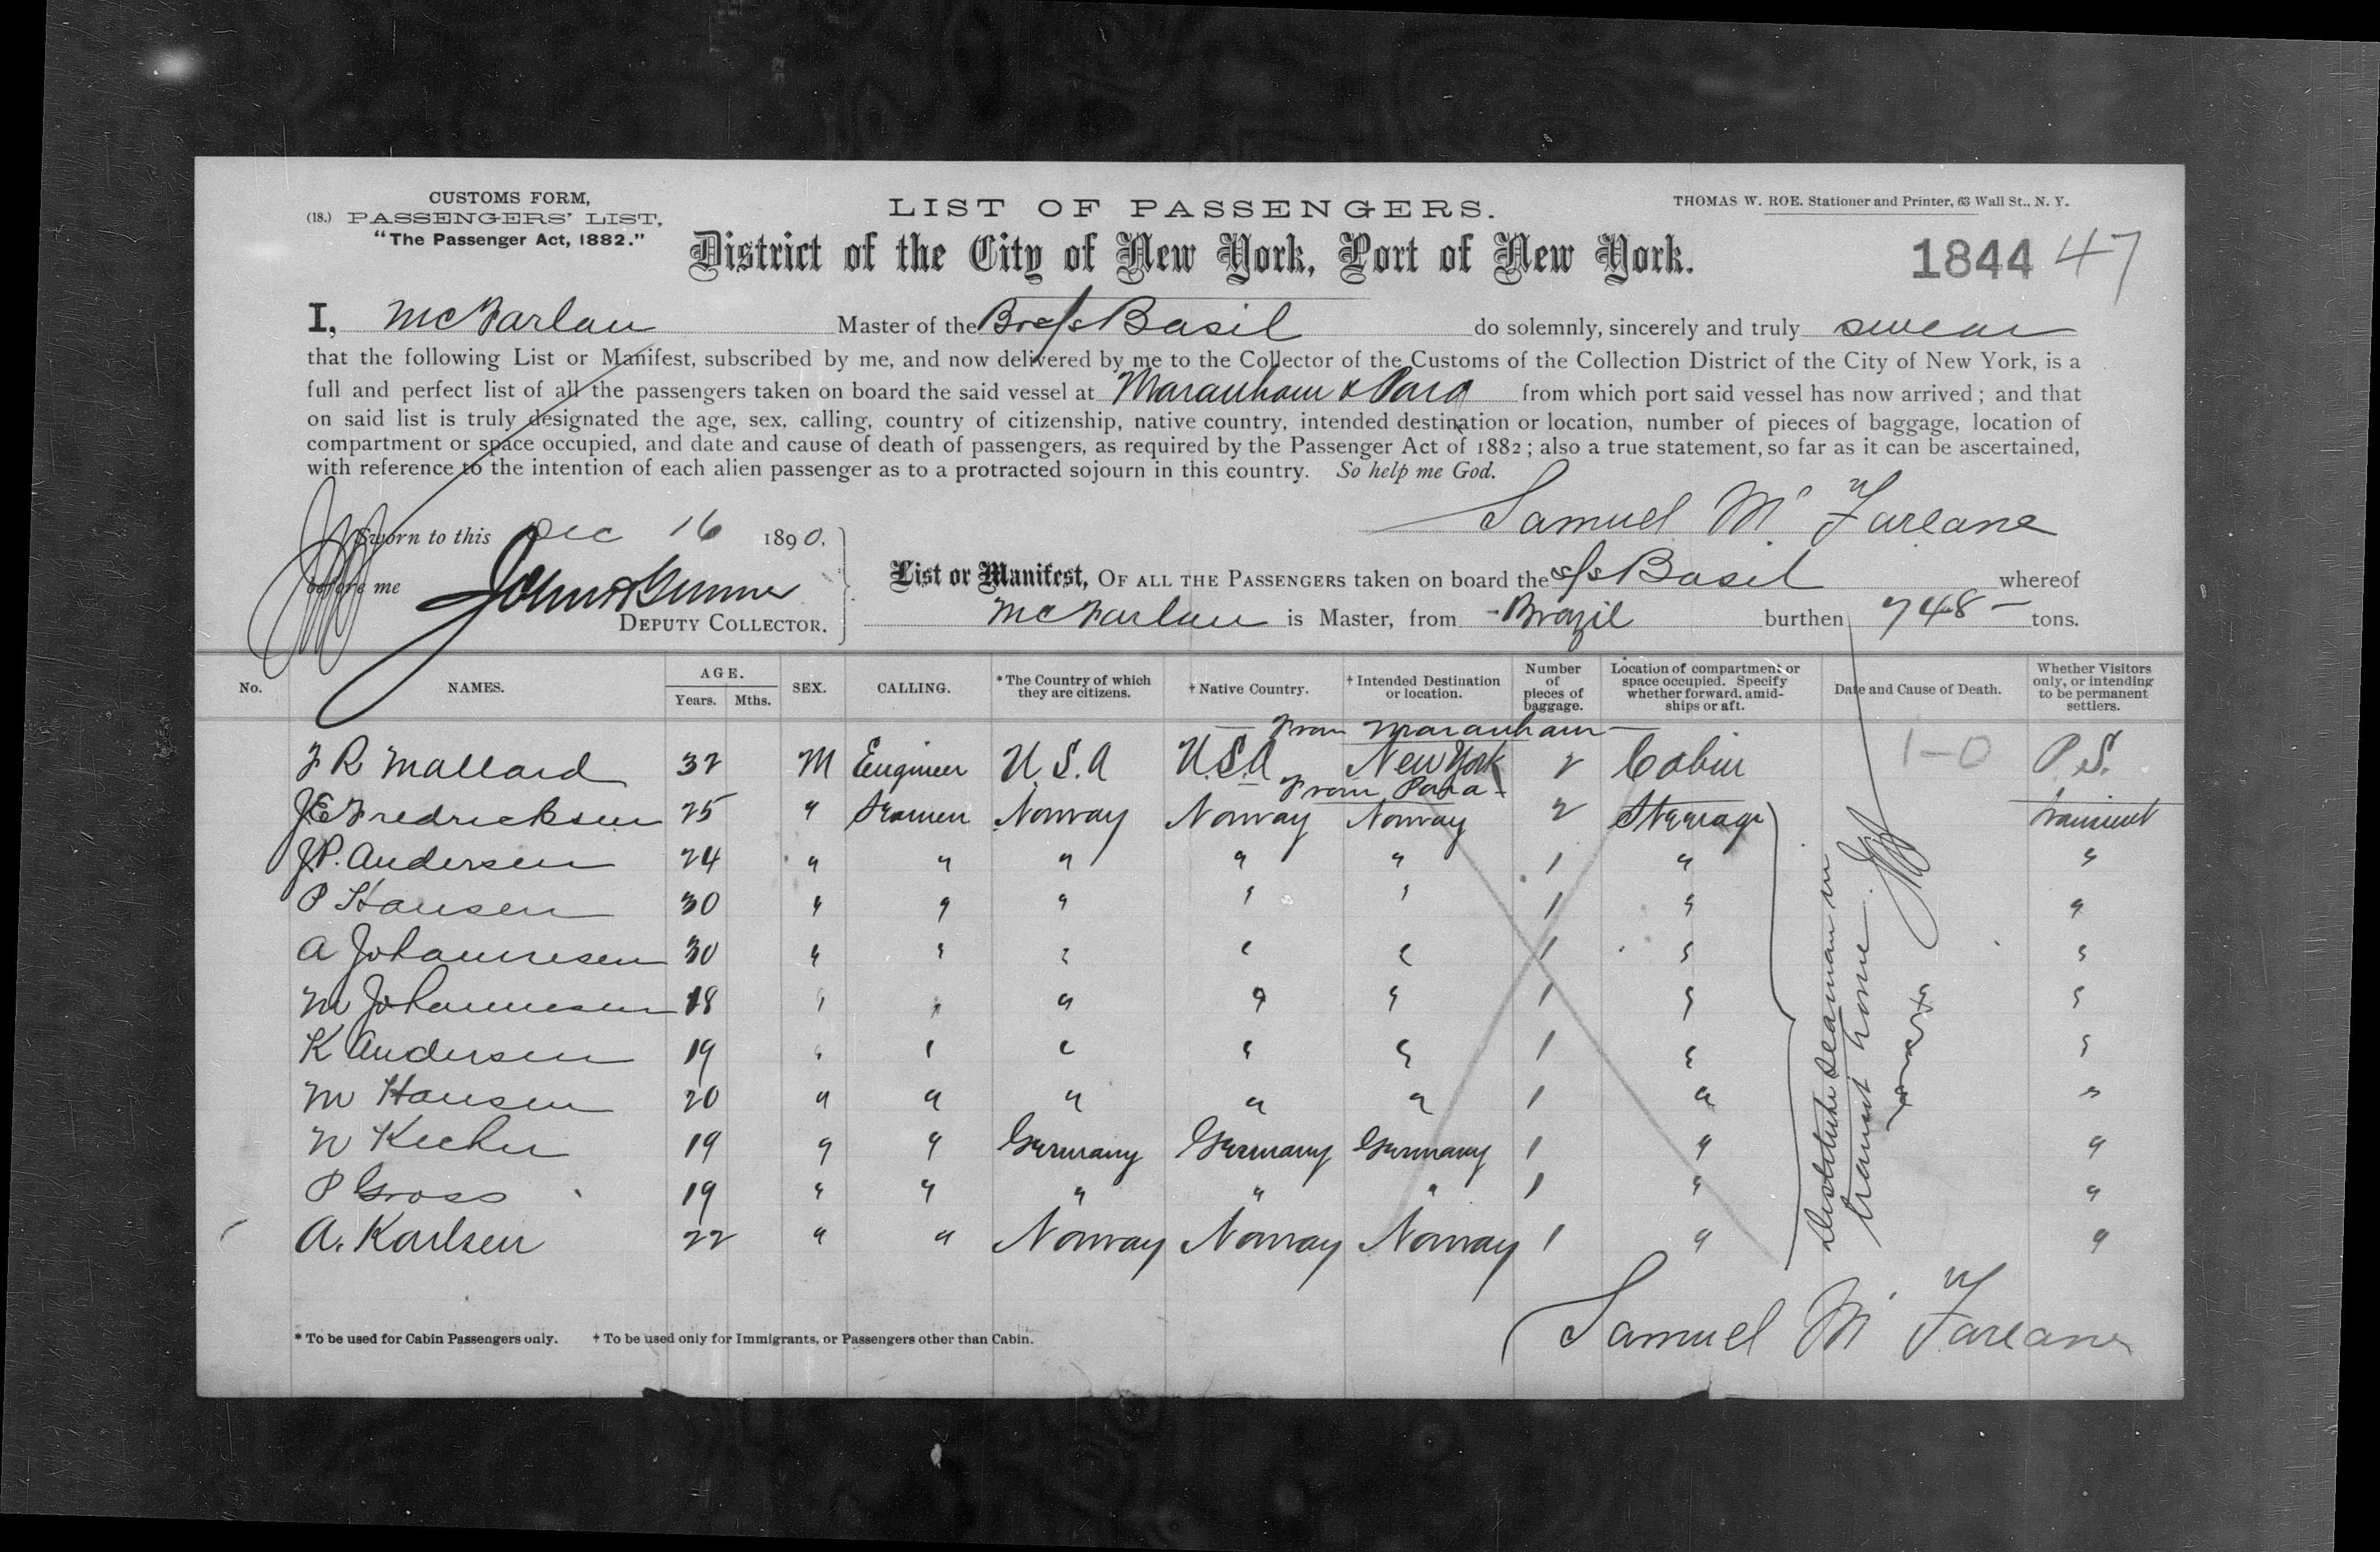 CUSTOMS FORM,
(18.) PASSENGERS' LIST,
"The Passenger Act, 1882."
LIST OF PASSENGERS.
THOMAS W. ROE. Stationer and Printer, 63 Wall St., N. Y.
District of the City of New York, Port of New York.
1844 47
I, McFarlan Master of the Br s/s Basil do solemnly, sincerely and truly swear
that the following List or Manifest, subscribed by me, and now delivered by me to the Collector of the Customs of the Collection District of the City of New York, is a
full and perfect list of all the passengers taken on board the said vessel at Maranham & Para from which port said vessel has now arrived; and that
on said list is truly designated the age, sex, calling, country of citizenship, native country, intended destination or location, number of pieces of baggage, location of
compartment or space occupied, and date and cause of death of passengers, as required by the Passenger Act of 1882; also a true statement, so far as it can be ascertained,
with reference to the intention of each alien passenger as to a protracted sojourn in this country. So help me God.
Samuel Mc Farlane
Sworn to this Dec 16 1890.
before me
DEPUTY COLLECTOR.
List or Manifest, OF ALL THE PASSENGERS taken on board the s/s Basil whereof
McFarlan is Master, from Brazil burthen 748 tons.
No. NAMES. AGE. Years. Mths. SEX. CALLING. *The Country of which they are citizens. †Native Country. †Intended Destination or location. Number of pieces of baggage. Location of compartment or space occupied. Specify whether forward, amidships or aft. Date and Cause of Death. Whether Visitors only, or intending to be permanent settlers.
From Maranham
F R Mallard 32 M Engineer U.S.A U.S.A New York 2 Cabin 1-0 P.S.
From Para
J E Fredricksen 25 " Seamen Norway Norway Norway 2 Steerage transient
J P. Andersen 24 " " " " " 1 " "
P Hansen 30 " " " " " 1 " "
A Johannesen 30 " " " " " 1 " "
M Johannesen 18 " " " " " 1 " "
K Andersen 19 " " " " " 1 " "
M Hansen 20 " " " " " 1 " "
N 19 " " Germany Germany Germany 1 " "
P Gross 19 " " " " " 1 " "
A. Karlsen 22 " " Norway Norway Norway 1 " "
Destitute seaman in
transit home
* To be used for Cabin Passengers only. † To be used only for Immigrants, or Passengers other than Cabin.
Samuel Mc Farlane